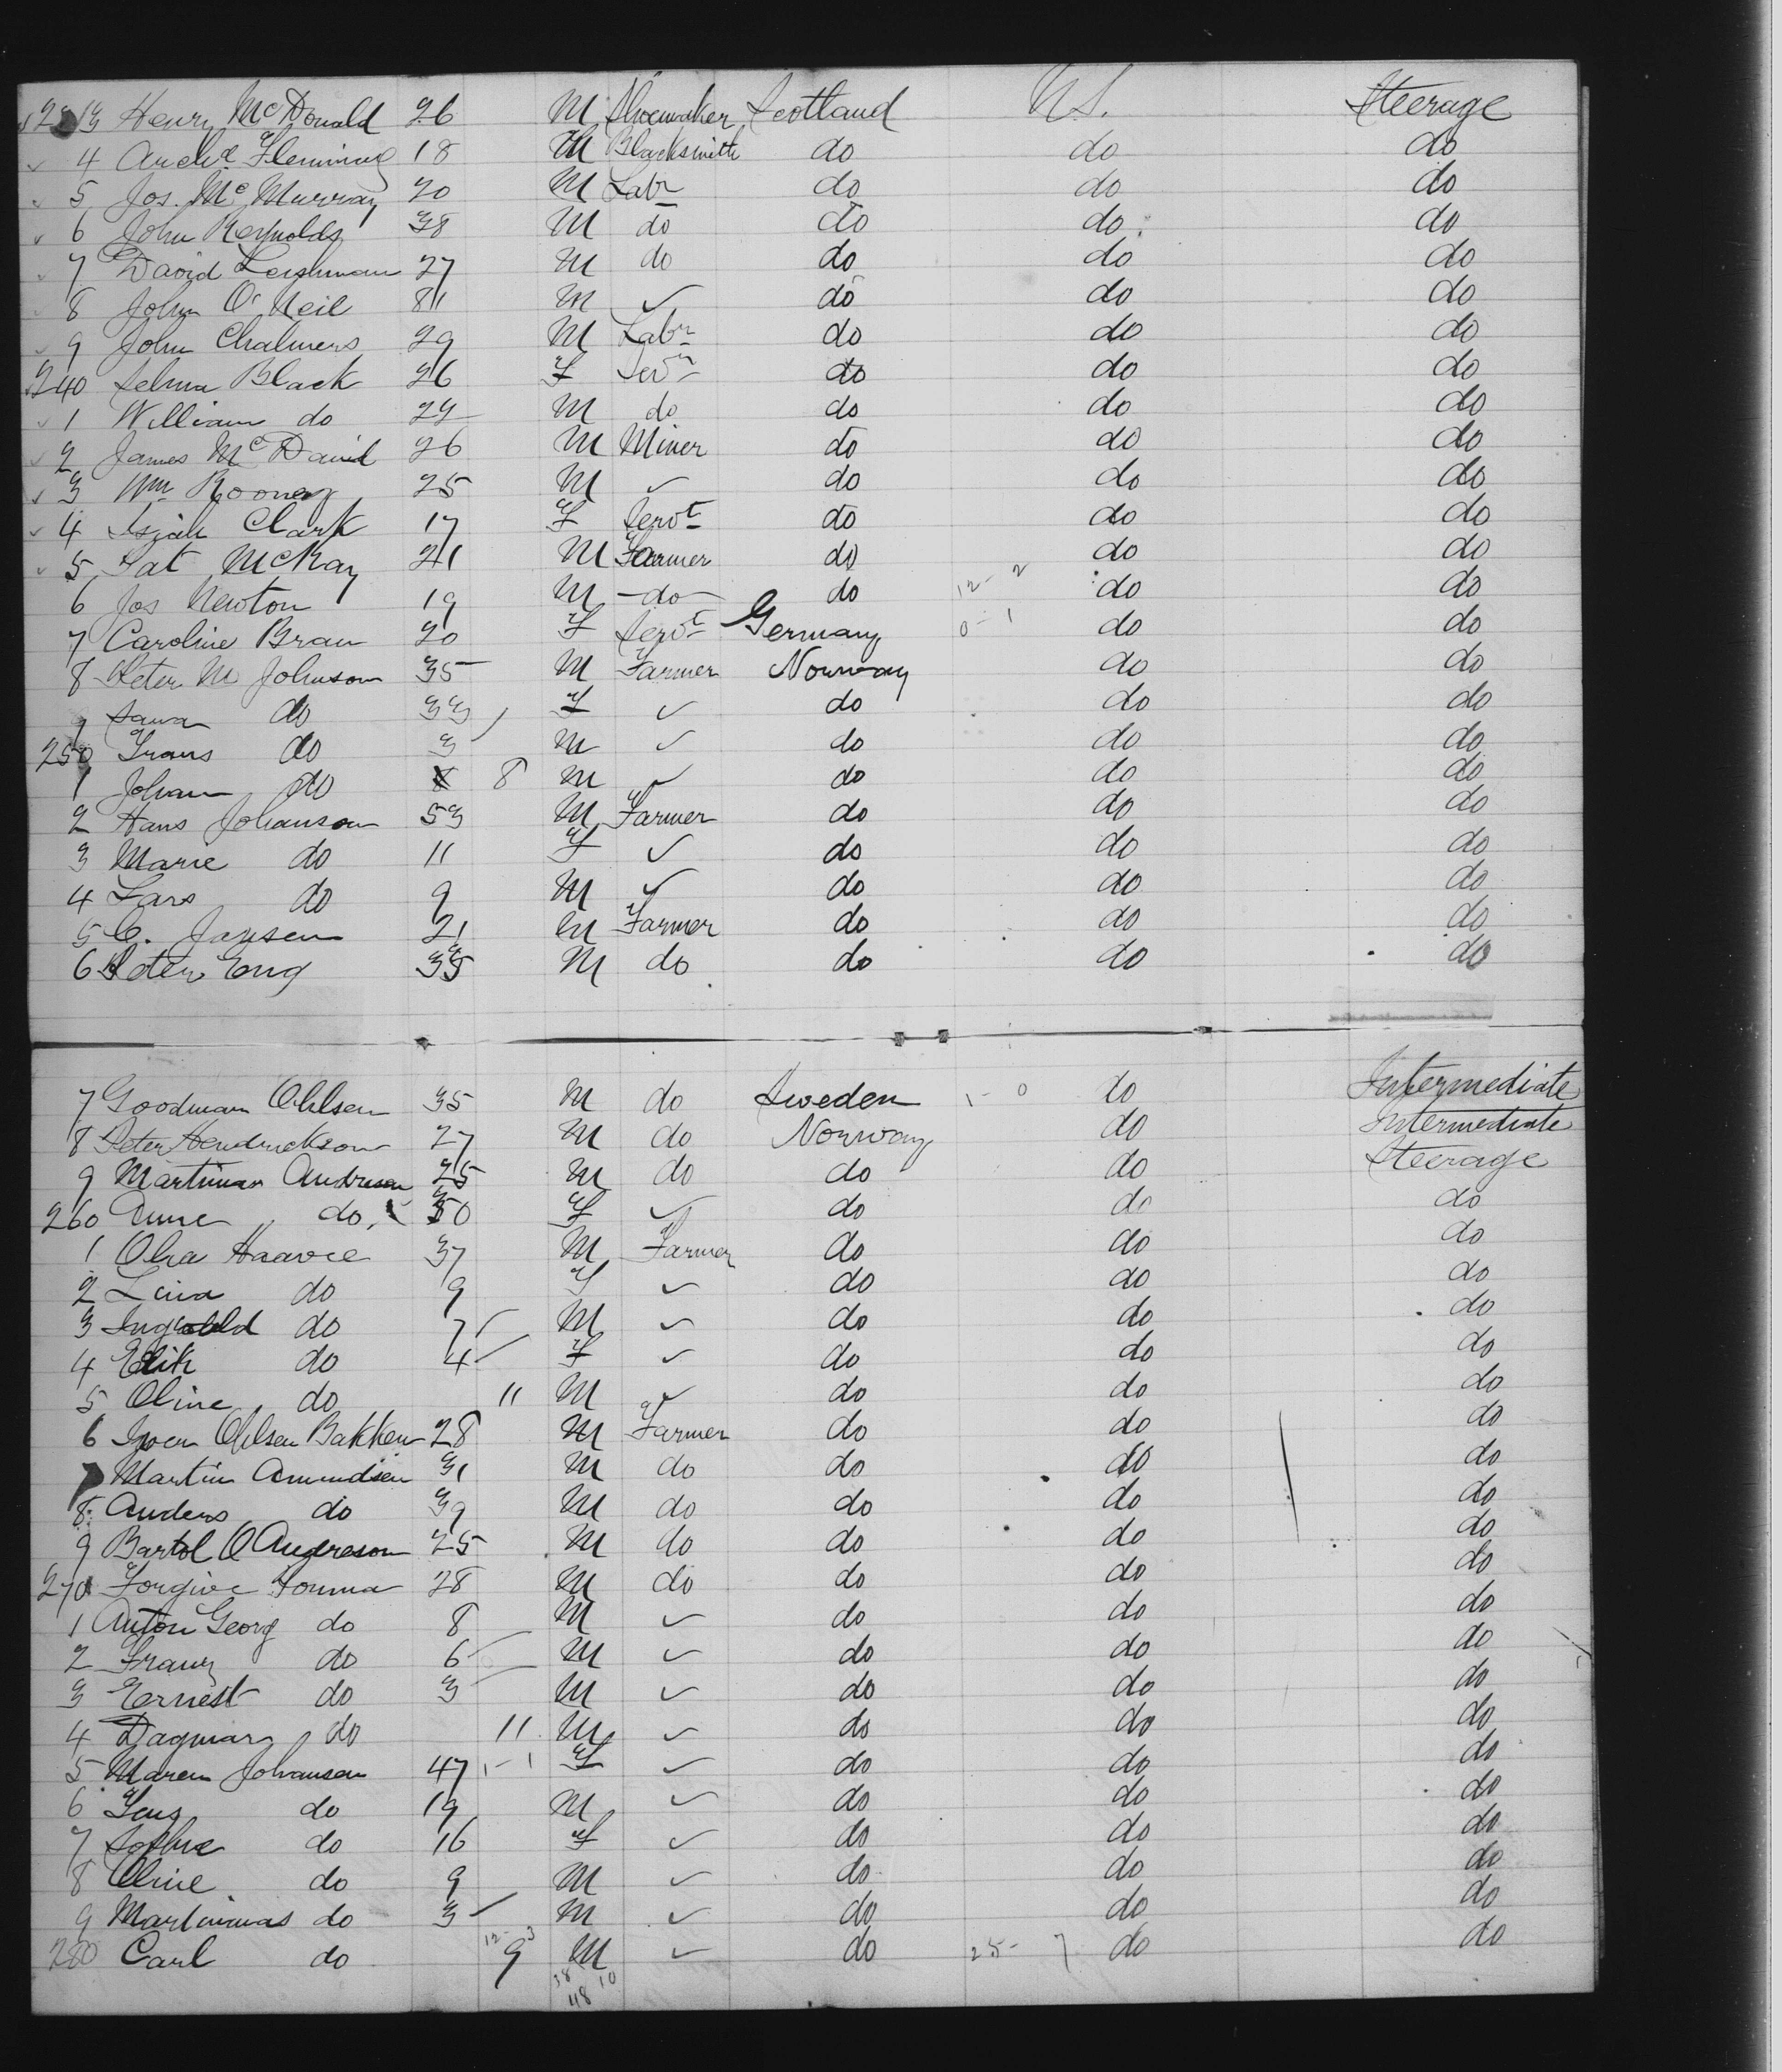 233 Henry McDonald 26 M Shoemaker Scotland U.S. Steerage
4 Archd Fleming 18 M Blacksmith do do do
5 Jos. McMurray 20 M Labr do do do
6 John Reynolds 38 M do do do do
7 David Leishman 27 M do do do do
8 John O'Neil 81 M ✓ do do do
9 John Chalmers 29 M Labr do do do
240 Selma Black 26 F do do do
1 William do 24 M do do do do
2 James McDavid 26 M Miner do do do
3 Wm Rooney 25 M ✓ do do do
4 Clark 17 F Servt do do do
5 Pat McKay 21 M Farmer do do do
6 Jos Newton 19 M -do- do 12-2 do do
7 Caroline Braun 20 F Servt Germany 0-1 do do
8 Peter M Johnson 35 M Farmer Norway do do
9 do 33 F ✓ do do do
250 Frans do 3 M ✓ do do do
1 Johan do 8 M ✓ do do do
2 Hans Johanson 53 M Farmer do do do
3 Marie do 11 F ✓ do do do
4 Lars do 9 M ✓ do do do
5 C. Jansen 21 M Farmer do do do
6 Peter Eng 35 M do do do do
7 Goodman Ohlsen 35 M do Sweden 1-0 do Intermediate
8 Peter Hendrickson 27 M do Norway do Intermediate
9 Martinus Andresen 25 M do do do Steerage
260 do 30 F ✓ do do do
1 Olea Haavee 37 M Farmer do do do
2 Lina do 9 F ✓ do do do
3 Ingvald do 7 M ✓ do do do
4 do 4 F ✓ do do do
5 Oline do 11 M ✓ do do do
6 Iver Ohlsen Bakken 28 M Farmer do do do
7 Martin Amundsen 31 M do do do do
8 Anders do 39 M do do do do
9 Bartol O 25 M do do do do
270 28 M do do do do
1 Anton Georg do 8 M ✓ do do do
2 Franz do 6 M ✓ do do do
3 Ernest do 3 M ✓ do do do
4 Dagmar do 11 M ✓ do do do
5 Maren Johansen 47 1-1 F ✓ do do do
6 Jens do 19 M ✓ do do do
7 Sophie do 16 F ✓ do do do
8 Oline do 9 M ✓ do do do
9 Martinimas do 3 M ✓ do do do
280 Carl do 12- 9 3 M ✓ do 25- 7 do do
38 10
48